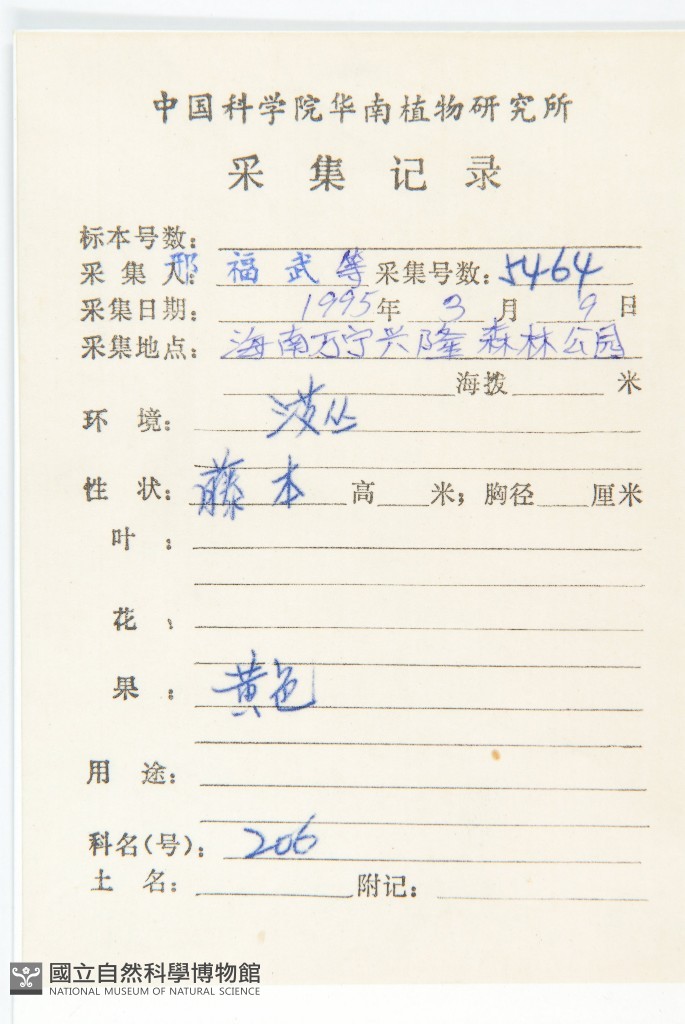 中国科学院华南植物研究所
采集记录
标本号数:
采集人: 邢福武等 采集号数: 5464
采集日期: 1995年 3月 9日
采集地点: 海南万宁兴隆森林公园
海拨 米
环境: 丛
性状: 藤本 高 米; 胸径 厘米
叶:
花:
果: 黄色
用途:
科名(号): 206
土名: 附记:
國立自然科學博物館
NATIONAL MUSEUM OF NATURAL SCIENCE